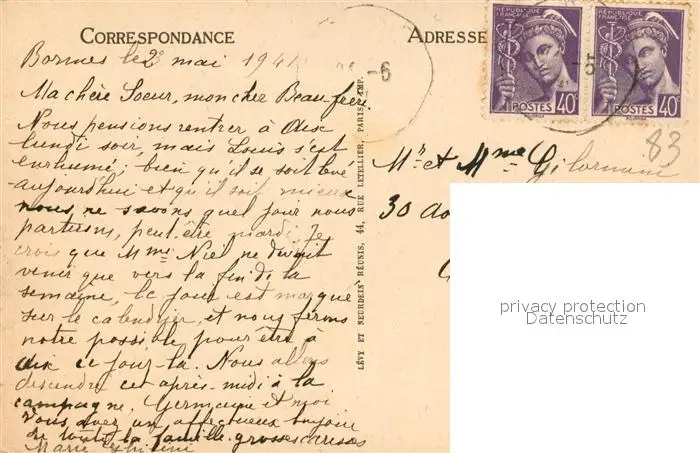 CORRESPONDANCE
Bormes le 2 mai 1941
Ma chère Soeur, mon cher Beau frère
Nous pensions rentrer à Aix
lundi soir, mais Louis s'est
enrhumé; bien qu'il se soit levé
aujourd'hui et qu'il soit mieux
nous ne savons quel jour nous
partirons, peut-être mardi. Je
crois que Mme Niel ne devait
venir que vers la fin de la
semaine, le jour est marqué
sur le calendrier et nous ferons
notre possible pour être à
Aix ce jour-là. Nous allons
descendre cet après-midi à la
campagne. Germaine et moi
vous avec un affectueux bonjour
de toute la famille grosses caresses
Marie
LÉVY ET NEURDEIN RÉUNIS, 44, RUE LETELLIER, PARIS. IMP.
ADRESSE
RÉPUBLIQUE FRANÇAISE
POSTES 40c
RÉPUBLIQUE FRANÇAISE
POSTES 40c
83
Mr et Mme
30
privacy protection
Datenschutz